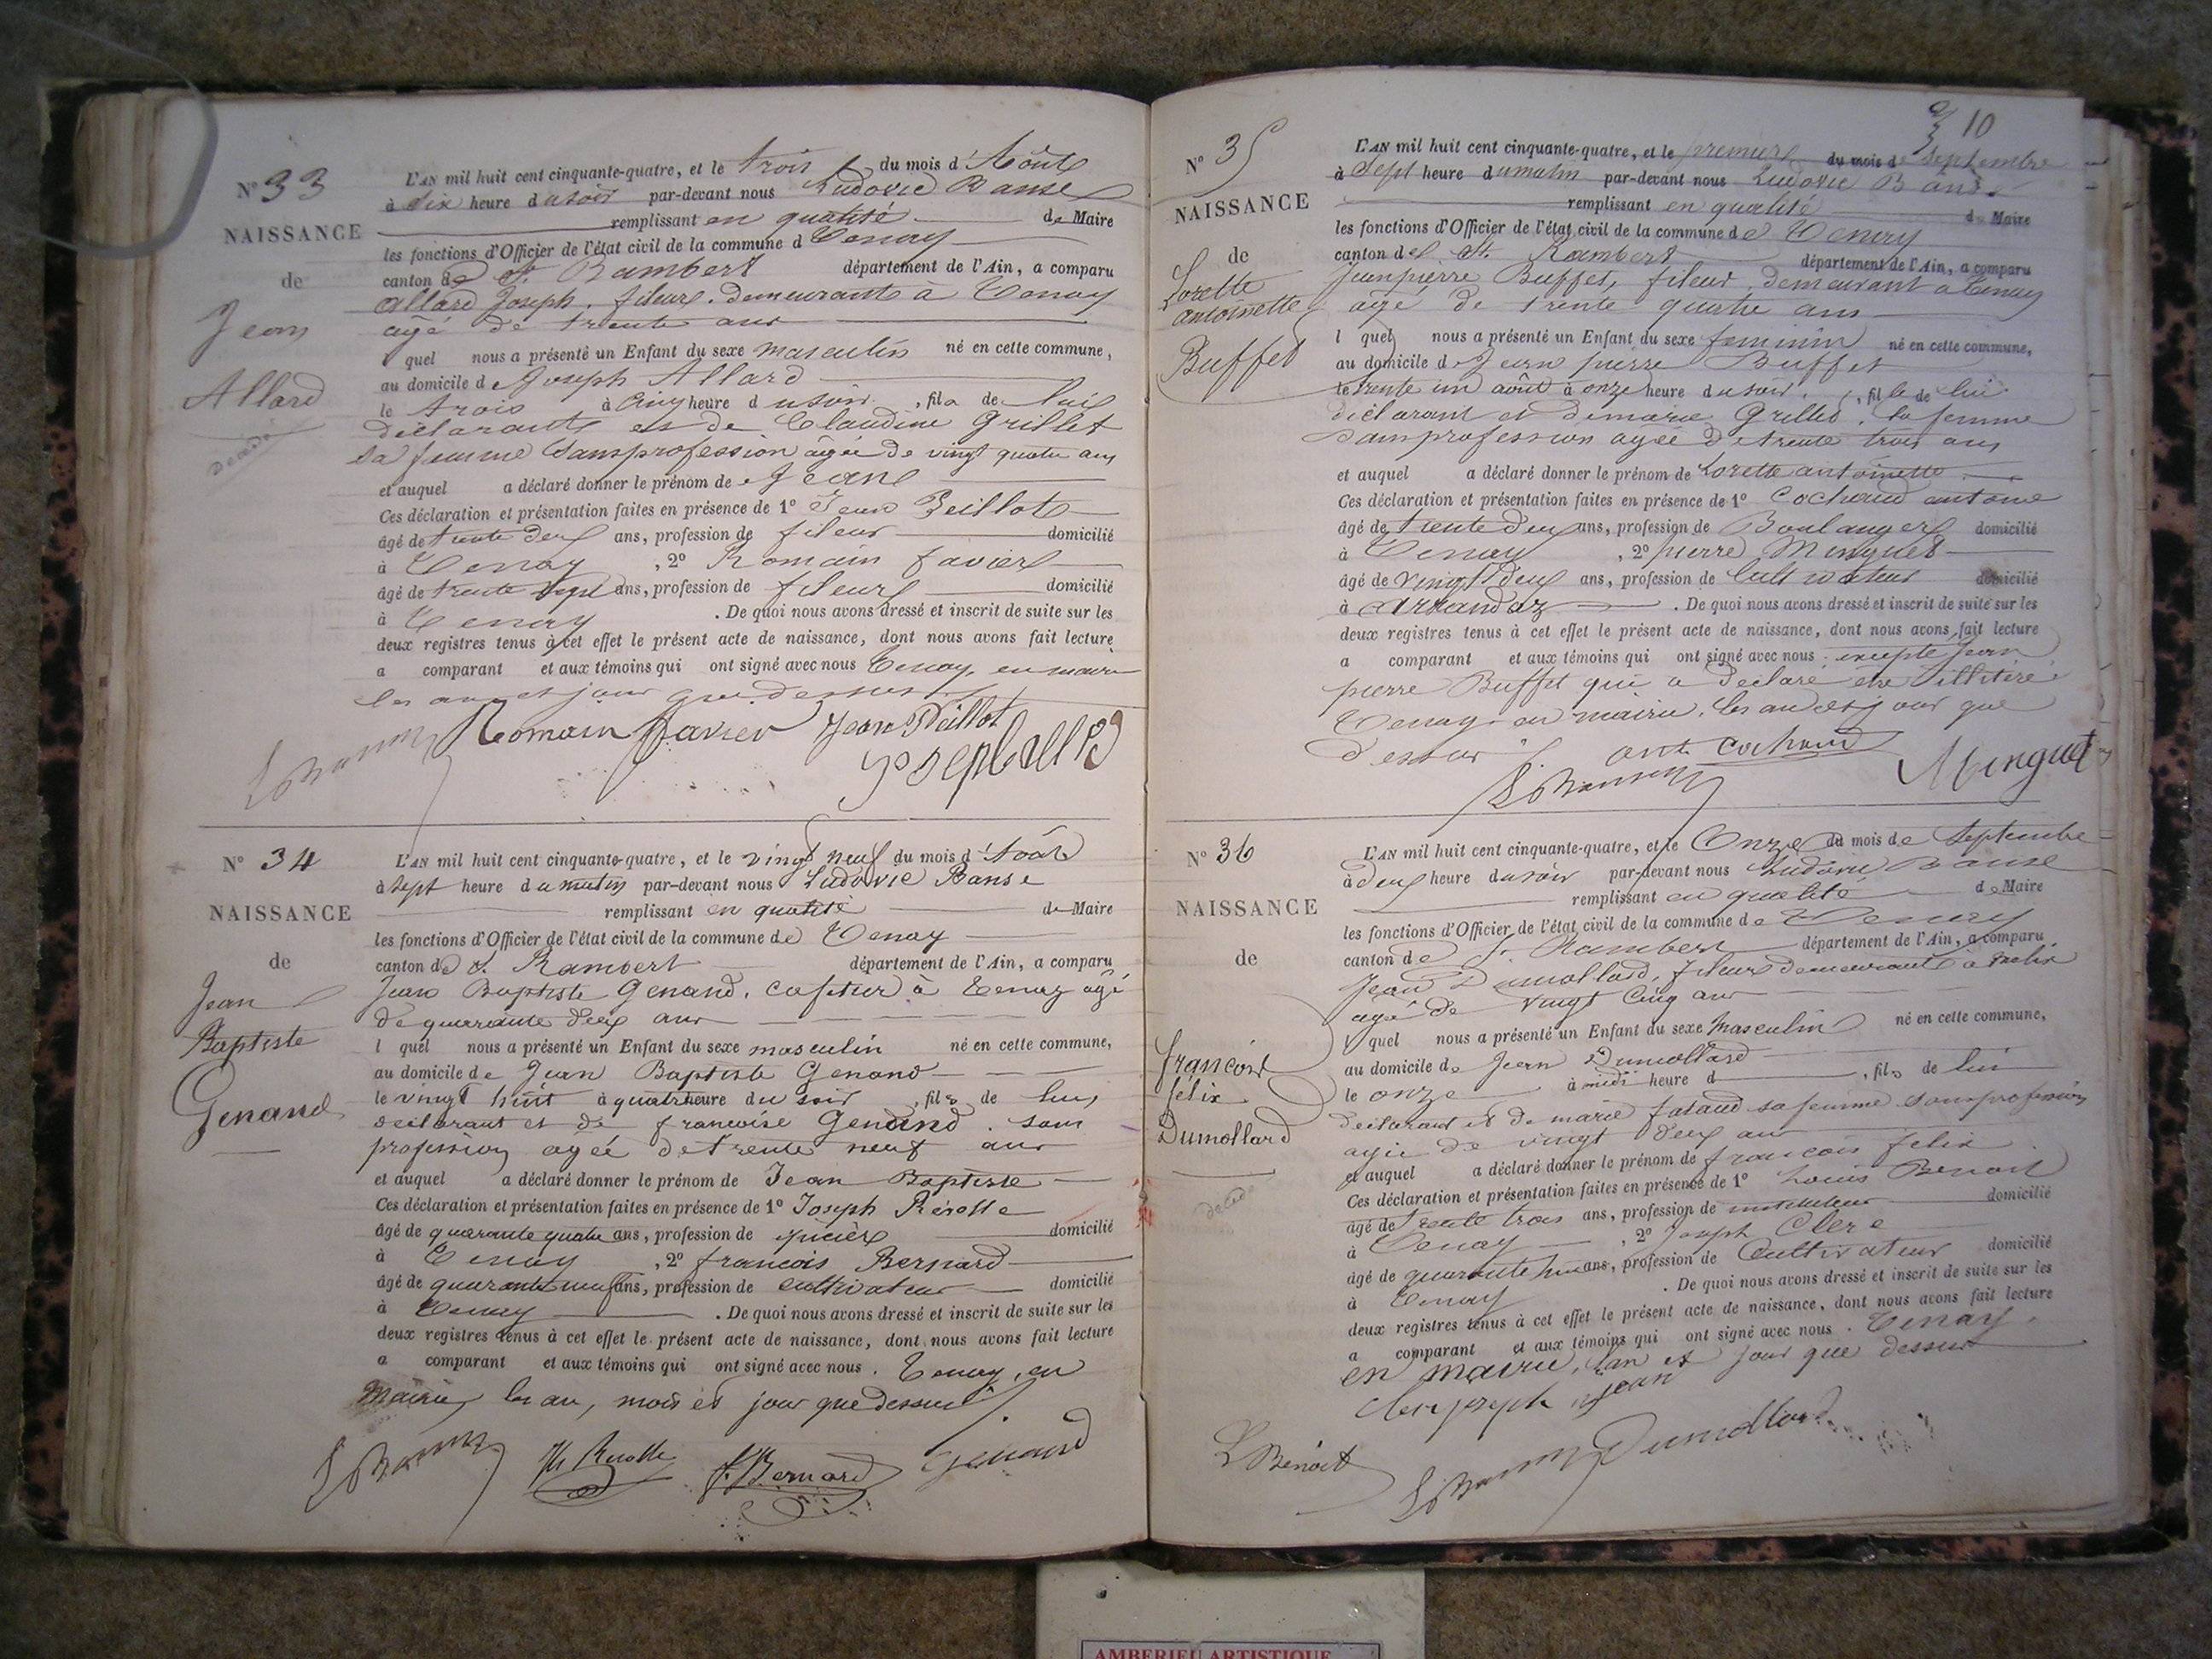 N° 33
NAISSANCE
de
Jean
Allard
Décédé
L'AN mil huit cent cinquante-quatre, et le trois du mois d'Août
à six heure du soir par-devant nous Ludovic Banse
remplissant en qualité de Maire
les fonctions d'Officier de l'état civil de la commune d Tenay
canton de St Rambert département de l'Ain, a comparu
Allard Joseph, fileur, demeurant à Tenay
âgé de trente ans
l quel nous a présenté un Enfant du sexe masculin né en cette commune,
au domicile d Joseph Allard
le trois à cinq heure du soir, fils de lui
déclarant et de Claudine Grillet
sa femme sans profession âgée de vingt quatre ans
et auquel a déclaré donner le prénom de Jean
Ces déclaration et présentation faites en présence de 1° Jean Beillot
âgé de trente deux ans, profession de fileur domicilié
à Tenay, 2° Romain Favier
âgé de trente sept ans, profession de fileur domicilié
à Tenay. De quoi nous avons dressé et inscrit de suite sur les
deux registres tenus à cet effet le présent acte de naissance, dont nous avons fait lecture
a comparant et aux témoins qui ont signé avec nous Tenay, en mairie
les an et jour que dessus
Romain favier Jean Beillot
Joseph all
N° 34
NAISSANCE
de
Jean
Baptiste
Genand
L'AN mil huit cent cinquante-quatre, et le vingt neuf du mois d'Août
à sept heure du matin par-devant nous Ludovic Banse
remplissant en qualité de Maire
les fonctions d'Officier de l'état civil de la commune de Tenay
canton de S. Rambert département de l'Ain, a comparu
Jean Baptiste Genand, à Tenay agé
de quarante deux ans
l quel nous a présenté un Enfant du sexe masculin né en cette commune,
au domicile de Jean Baptiste Genand
le vingt huit à quatre heure du soir, fils de lui
déclarant et de francoise Genand. sans
profession agée de trente neuf ans
et auquel a déclaré donner le prénom de Jean Baptiste
Ces déclaration et présentation faites en présence de 1° Joseph Rérolle
âgé de quarante quatre ans, profession de épicier domicilié
à Tenay, 2° francois Bernard
âgé de quarante neuf ans, profession de cultivateur domicilié
à Tenay. De quoi nous avons dressé et inscrit de suite sur les
deux registres tenus à cet effet le présent acte de naissance, dont nous avons fait lecture
a comparant et aux témoins qui ont signé avec nous. Tenay, en
Mairie, les an, mois et jour que dessus
Rerolle Bernard Genand
10
N° 35
NAISSANCE
de
Lorette
antoinette
Buffet
L'AN mil huit cent cinquante-quatre, et le premier du mois de Septembre
à Sept heure du matin par-devant nous Ludovic Banse
remplissant en qualité de Maire
les fonctions d'Officier de l'état civil de la commune de Tenay
canton de St. Rambert département de l'Ain, a comparu
Jean pierre Buffet, fileur, demeurant à Tenay
âgé de trente quatre ans
l quel nous a présenté un Enfant du sexe feminin né en cette commune,
au domicile de Jean pierre Buffet
le trente un août à onze heure du soir, fille de lui
déclarant et de marie Grillet, sa femme
sans profession agée de trente trois ans
et auquel a déclaré donner le prénom de Lorette antoinette
Ces déclaration et présentation faites en présence de 1° Cochaud antoine
âgé de trente deux ans, profession de Boulanger domicilié
à Tenay, 2° pierre Minguet
âgé de vingt deux ans, profession de Cultivateur domicilié
à Arandaz. De quoi nous avons dressé et inscrit de suite sur les
deux registres tenus à cet effet le présent acte de naissance, dont nous avons fait lecture
a comparant et aux témoins qui ont signé avec nous, excepté Jean
pierre Buffet qui a déclaré être illitéré.
Tenay, en mairie, les an et jour que
dessus
ant. cochaud Minguet
N° 36
NAISSANCE
de
françois
félix
Dumollard
décédé
L'AN mil huit cent cinquante-quatre, et le Onze du mois de Septembre
à deux heure du soir par-devant nous Ludovic Banse
remplissant en qualité de Maire
les fonctions d'Officier de l'état civil de la commune de Tenay
canton de St. Rambert département de l'Ain, a comparu
Jean Dumollard, fileur demeurant à
agé de vingt cinq ans
l quel nous a présenté un Enfant du sexe Masculin né en cette commune,
au domicile de Jean Dumollard
le onze à midi heure d, fils de lui
déclarant et de marie sa femme sans profession
agée de vingt deux ans
et auquel a déclaré donner le prénom de francois félix
Ces déclaration et présentation faites en présence de 1° Louis Benoit
âgé de trente trois ans, profession de instituteur domicilié
à Tenay, 2° Joseph Clerc
âgé de quarante huit ans, profession de Cultivateur domicilié
à Tenay. De quoi nous avons dressé et inscrit de suite sur les
deux registres tenus à cet effet le présent acte de naissance, dont nous avons fait lecture
a comparant et aux témoins qui ont signé avec nous. Tenay,
en mairie, l'an et jour que dessus
clerc joseph jean
L Benoit Dumollard
AMBERIEU ARTISTIQUE